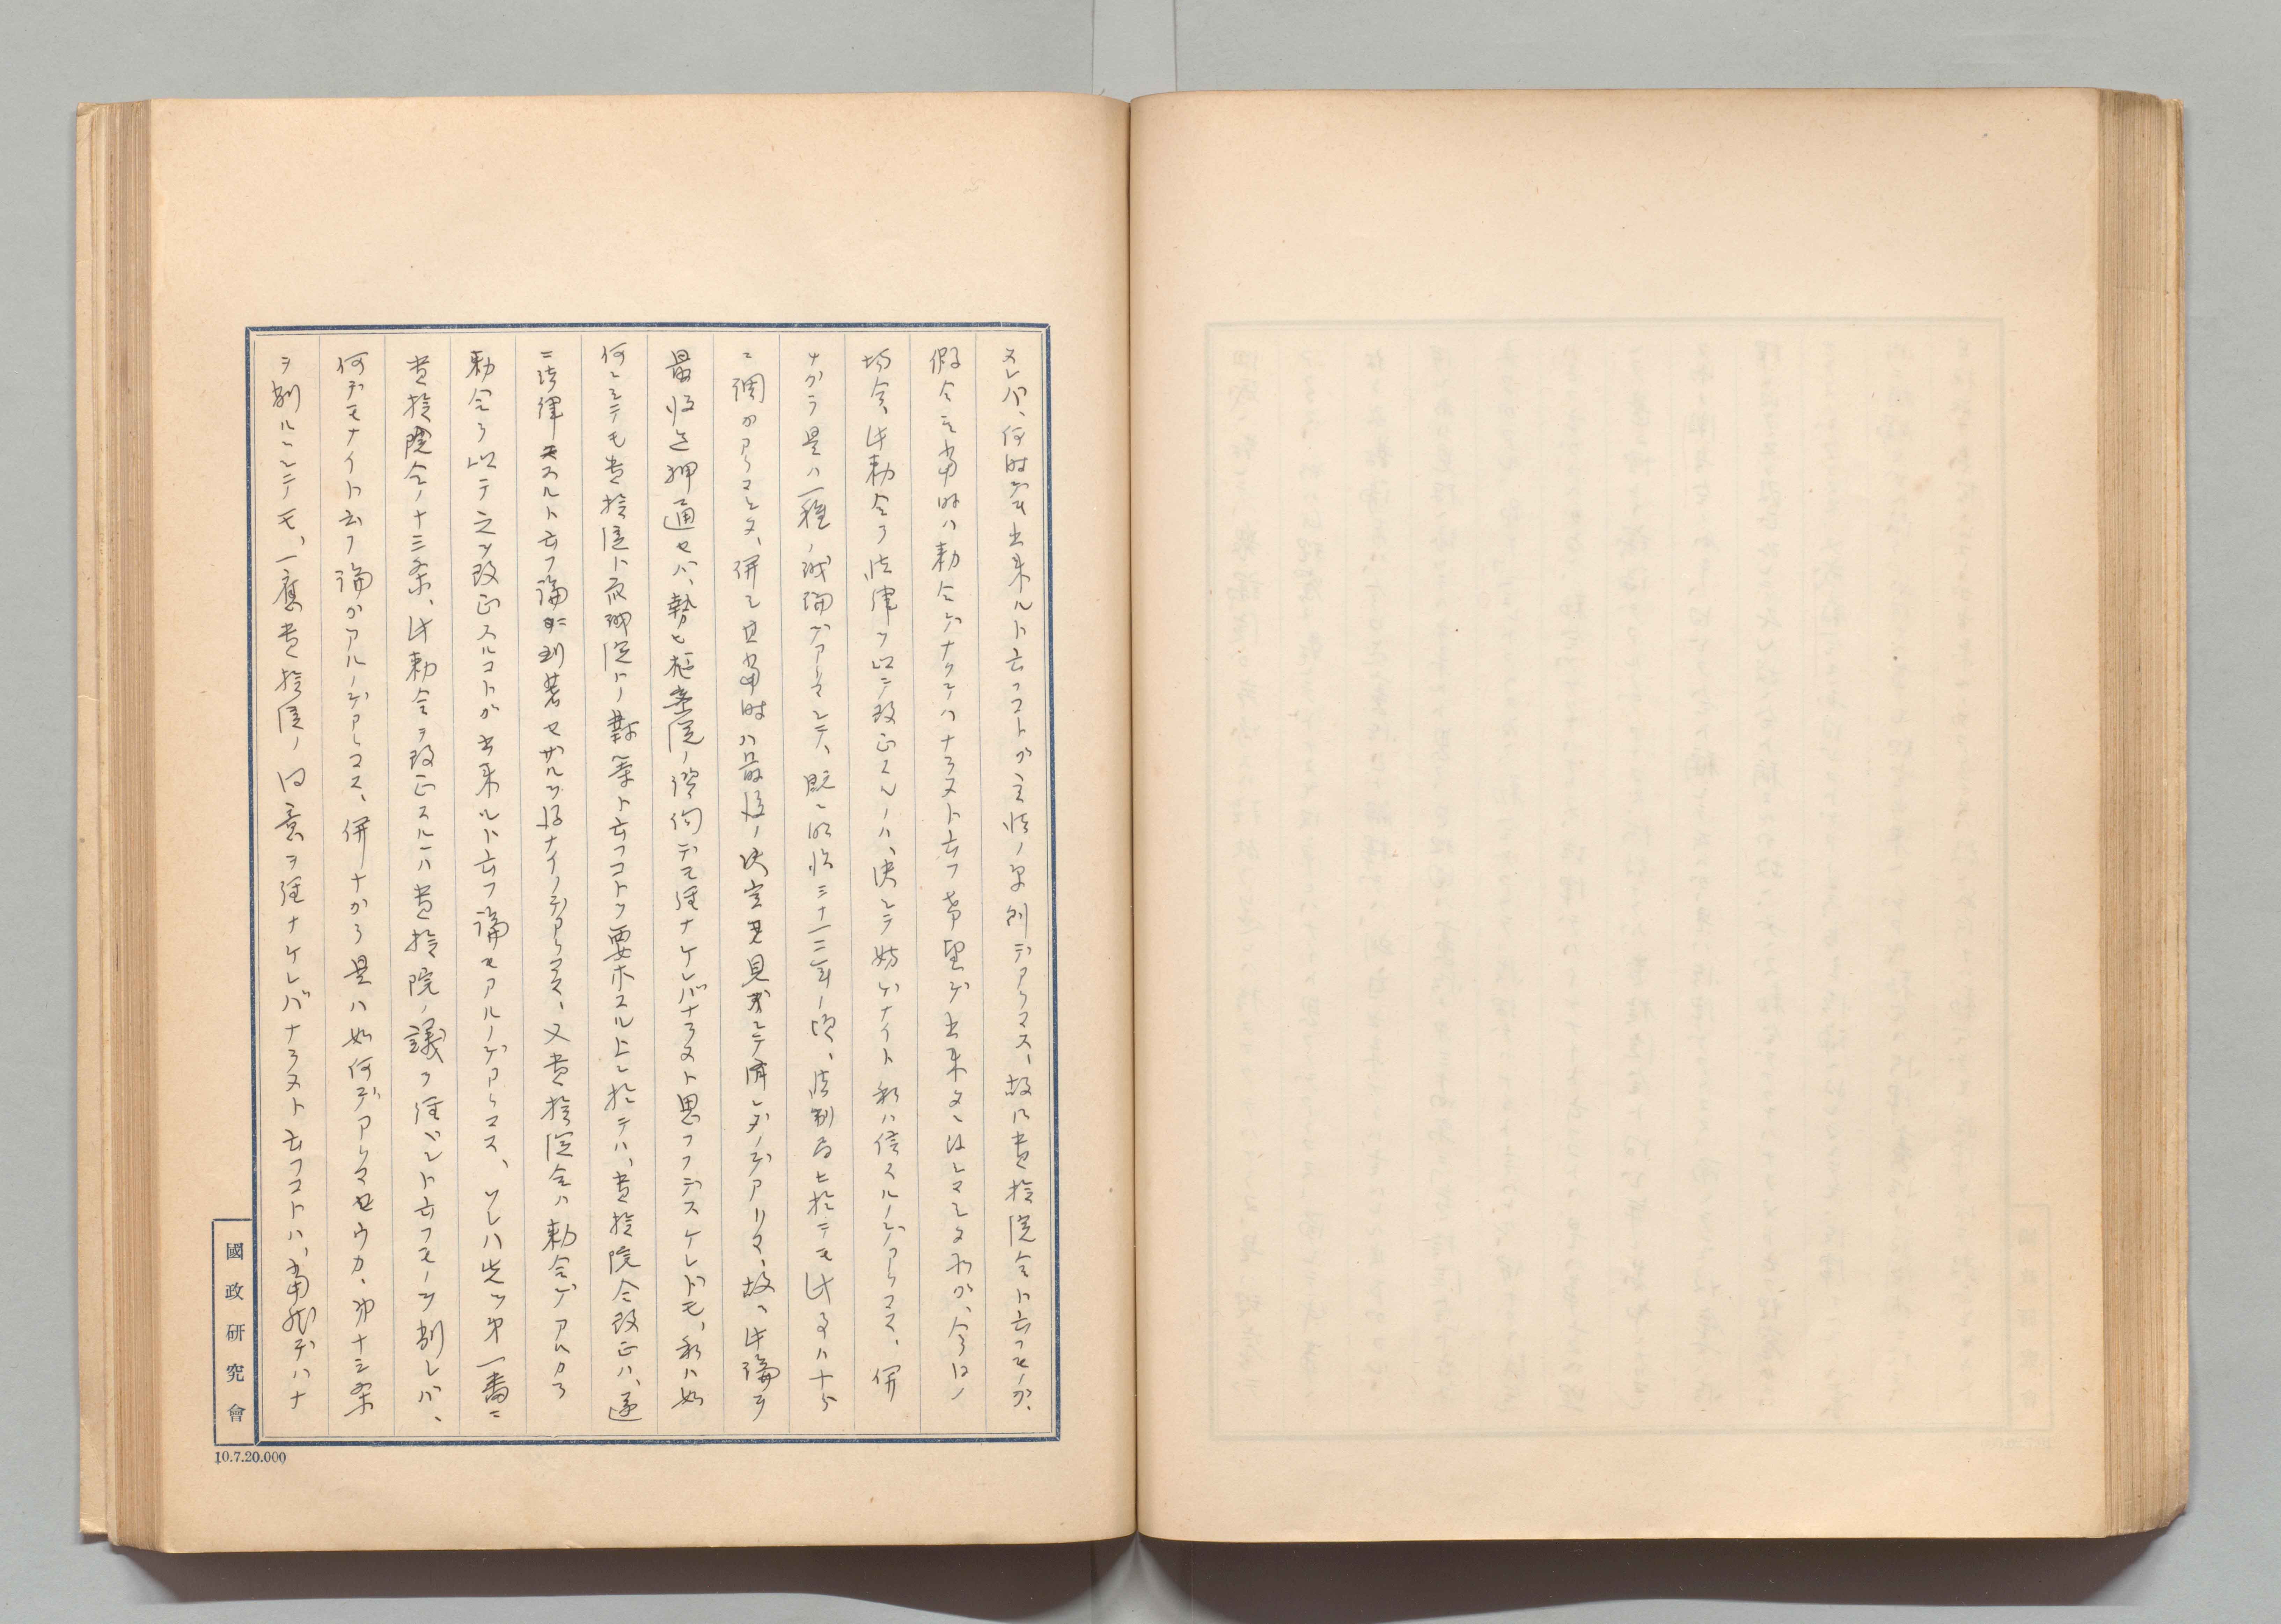 スレバ、何時デモ出来ルト云フコトガ立法ノ原則デアリマス、故ニ貴族院令ト云フモノガ、
假令ヒ当時ハ勅令デナクテハナラヌト云フ希望デ出来タニ致シマシタ所ガ、今日ノ
場合、此勅令ヲ法律ヲ以テ改正スルノハ、決シテ妨ゲナイト私ハ信ズルノデアリマス、併
ナガラ是ハ一種ノ議論デアリマシテ、既ニ明治三十一二年ノ頃、法制局ニ於テモ此事ハ十分
ニ調ガアリマシタ、併シ且当時ハ最後ノ決定ヲ見ズシテ済ンダノデアリマス、故ニ此論ヲ
最後迄押通セバ、勢ヒ枢密院ノ諮詢デモ経ナケレバナラヌト思フノデスケレドモ、私ハ如
何ニシテモ貴族院ト衆議院トノ對等ト云フコトヲ要求スル上ニ於テハ、貴族院令改正ハ、遂
ニ法律ニスルト云フ論ニ到着セザルヲ得ナイノデアリマス、又貴族院令ハ勅令デアルカラ
勅令ヲ以テ之ヲ改正スルコトガ出来ルト云フ論モアルノデアリマス、ソレハ先ヅ第一番ニ
貴族院令ノ十三条、此勅令ヲ改正スルニハ貴族院ノ議ヲ経ベシト云フモノヲ削レバ、
何デモナイト云フ論ガアルノデアリマス、併ナガラ是ハ如何デアリマセウカ、第十三条
ヲ削ルニシテモ、一應貴族院ノ同意ヲ経ナケレバナラヌト云フコトハ、當然デハナ
國政研究會
10.7.20.000